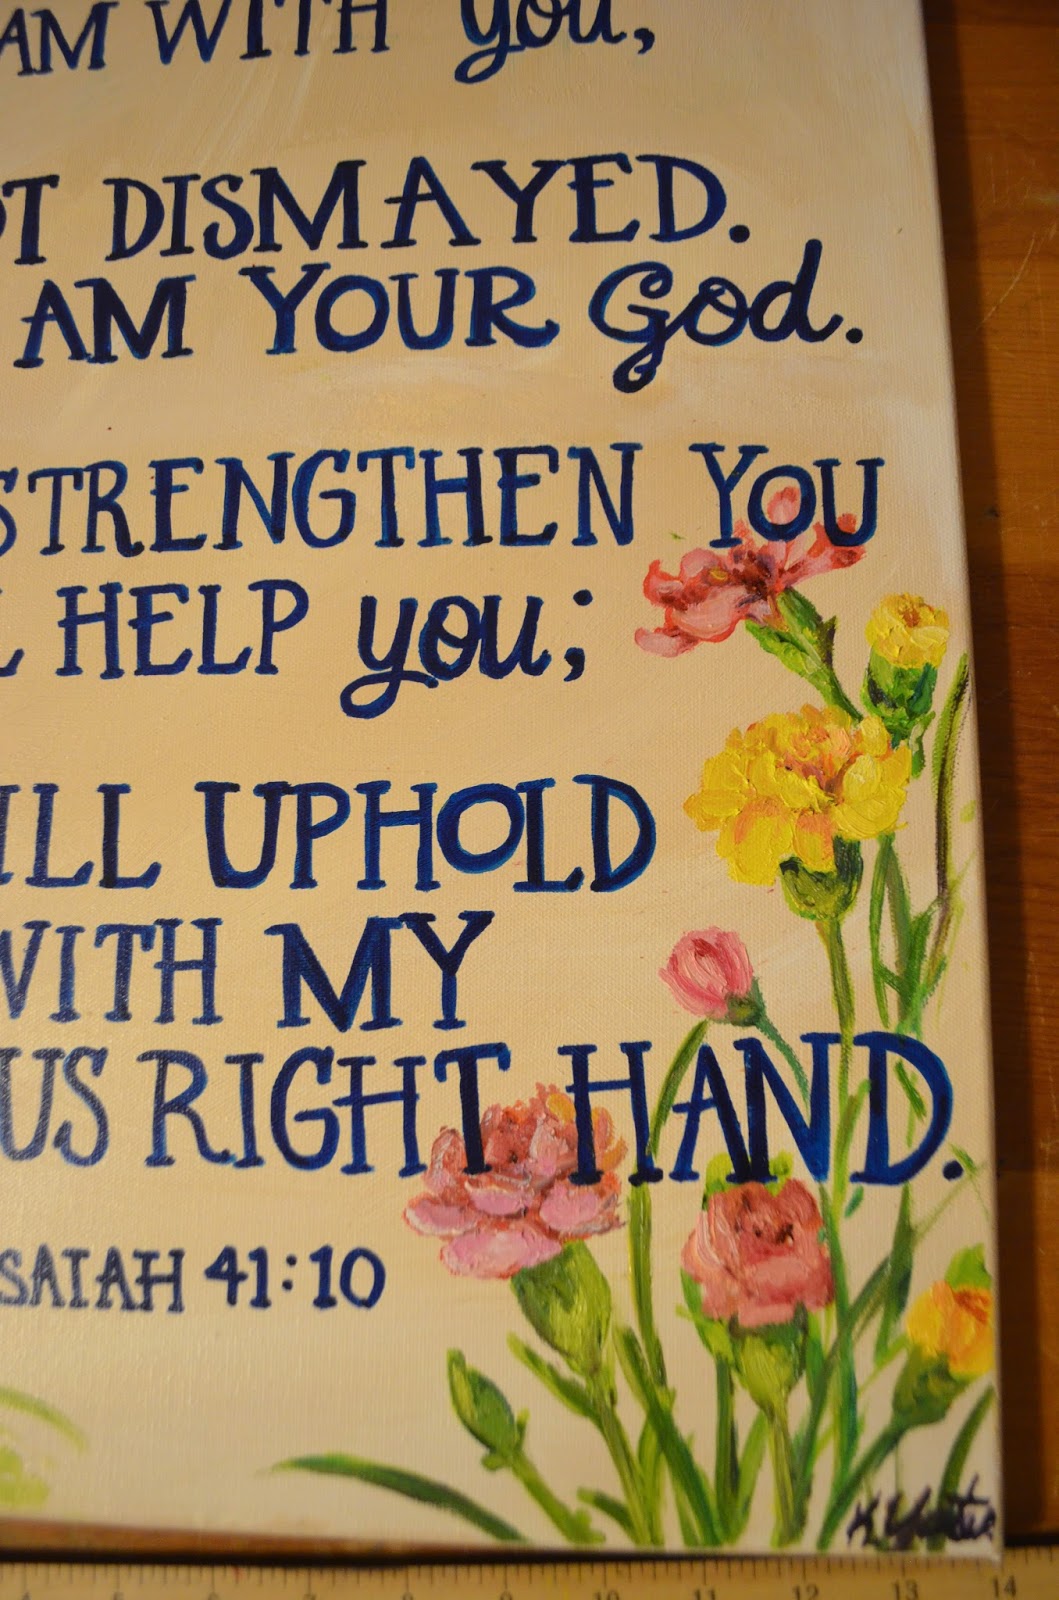 AM WITH you,
OT DISMAYED.
AM YOUR God.
STRENGTHEN YOU
L HELP you;
ILL UPHOLD
WITH MY
US RIGHT HAND.
SAIAH 41:10
4 5 6 7 8 9 10 11 12 13 14